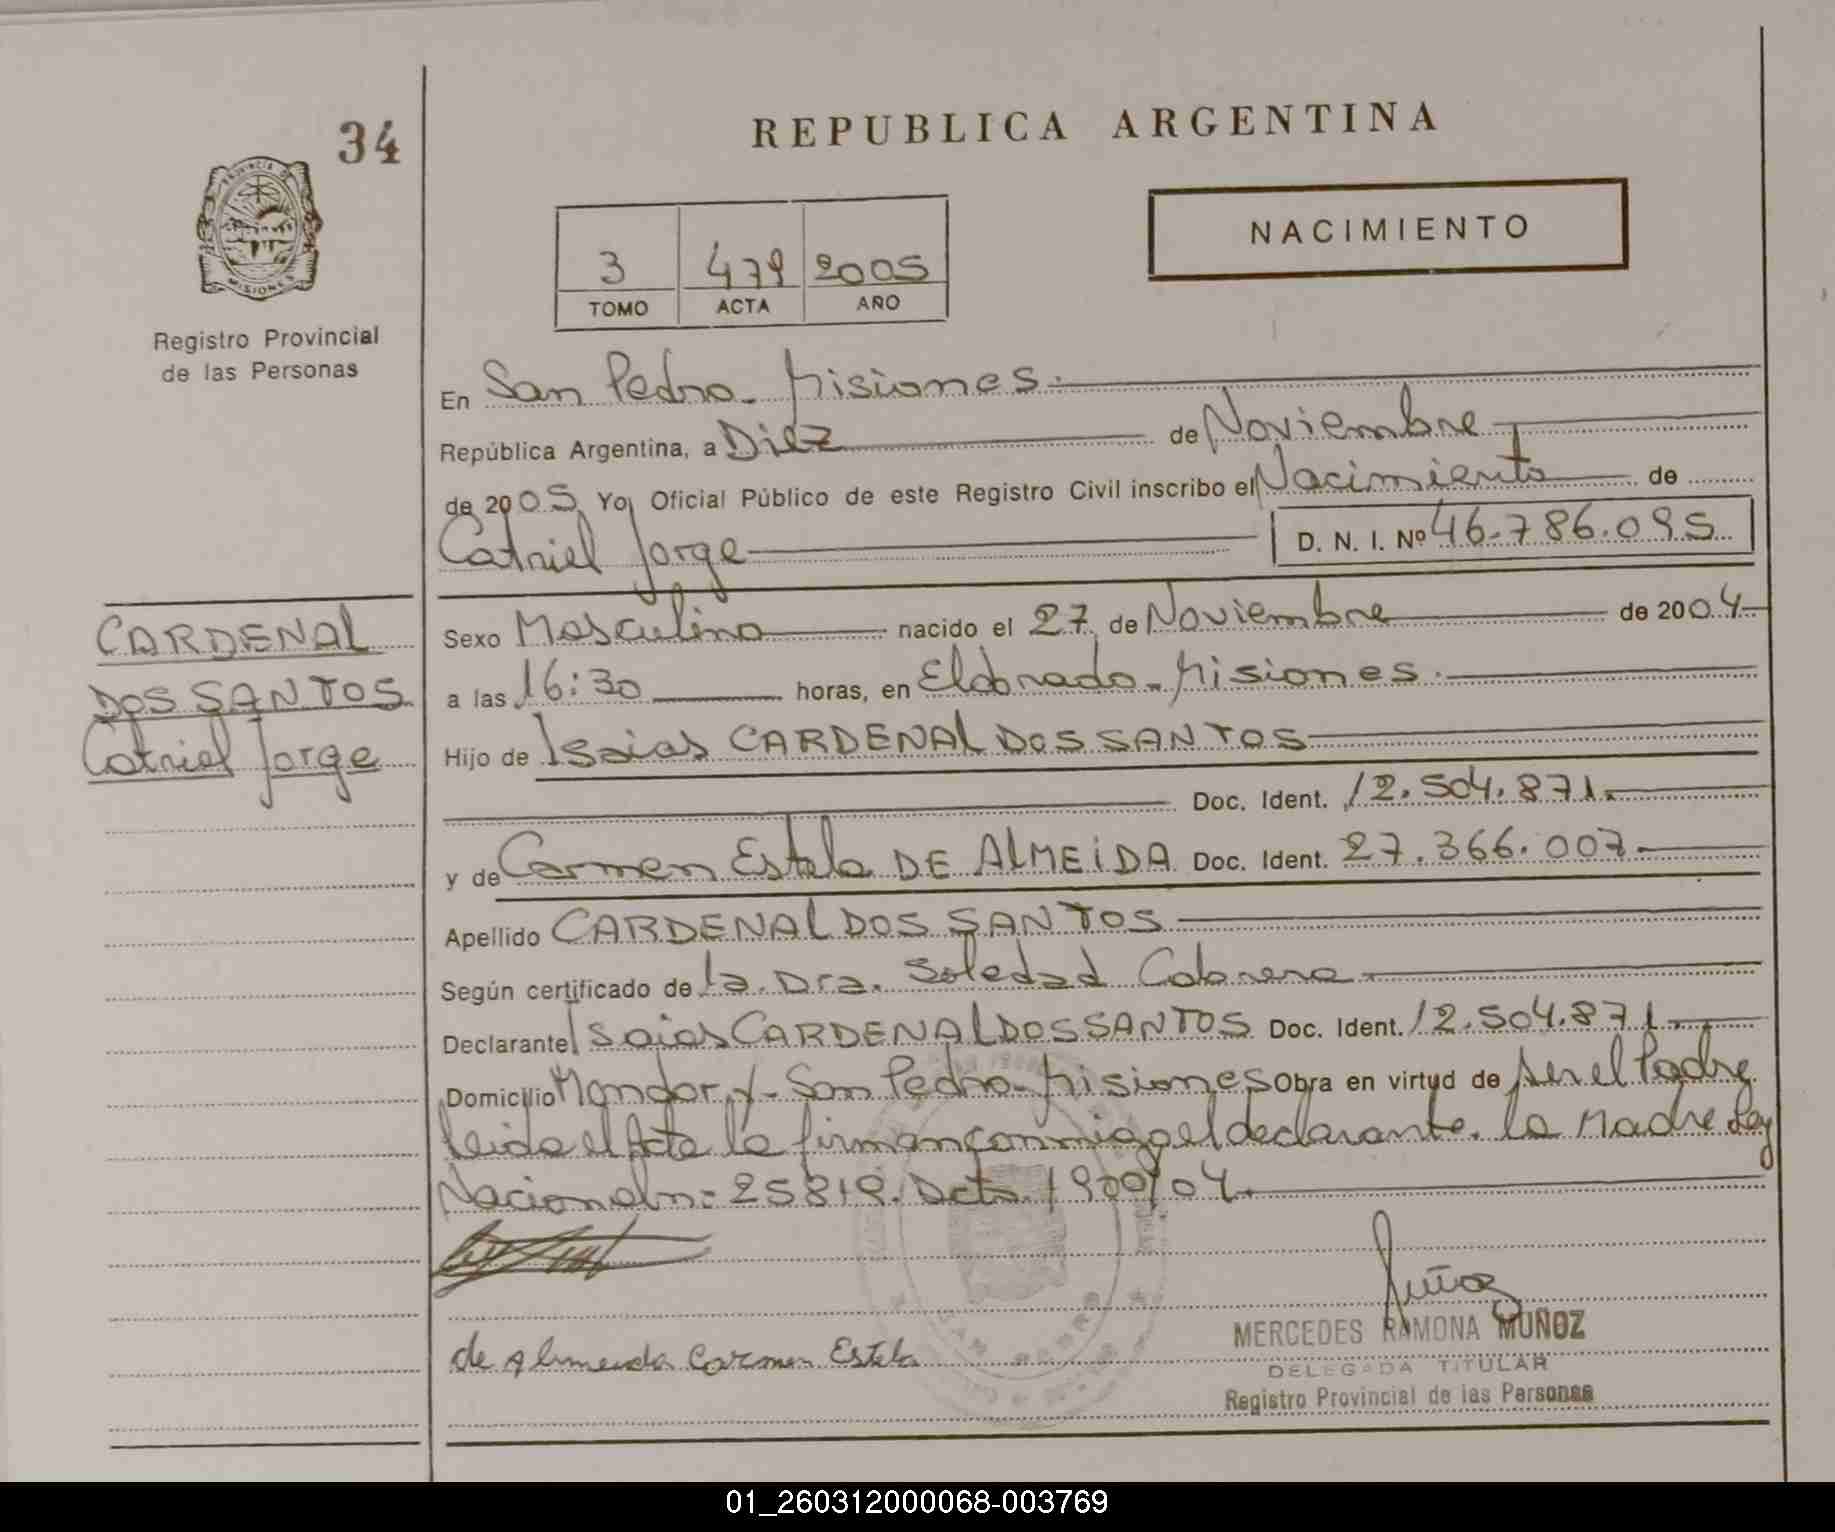 34
PROVINCIA DE
MISIONES
Registro Provincial
de las Personas
REPUBLICA ARGENTINA
NACIMIENTO
3 479 2005
TOMO ACTA AÑO
En San Pedro - Misiones.
República Argentina, a Diez de Noviembre
de 2005 Yo, Oficial Público de este Registro Civil inscribo el Nacimiento de
Catriel Jorge D. N. I. Nº 46.786.095
CARDENAL
DOS SANTOS
Catriel Jorge
Sexo Masculino nacido el 27 de Noviembre de 2004
a las 16:30 horas, en Eldorado - Misiones.
Hijo de Isaias CARDENAL DOS SANTOS
Doc. Ident. 12.504.871.
y de Carmen Estela DE ALMEIDA Doc. Ident. 27.366.007.
Apellido CARDENAL DOS SANTOS
Según certificado de la Dra. Soledad Cabrera
Declarante Isaias CARDENAL DOS SANTOS Doc. Ident. 12.504.871.
Domicilio - San Pedro - Misiones Obra en virtud de ser el Padre
leida el Acta la firman conmigo el declarante. la Madre Ley
Nacional n: 25819. Dcto. 1900/04.
de Almeida Carmen Estela
MERCEDES RAMONA MUÑOZ
DELEGADA TITULAR
Registro Provincial de las Personas
01_260312000068-003769